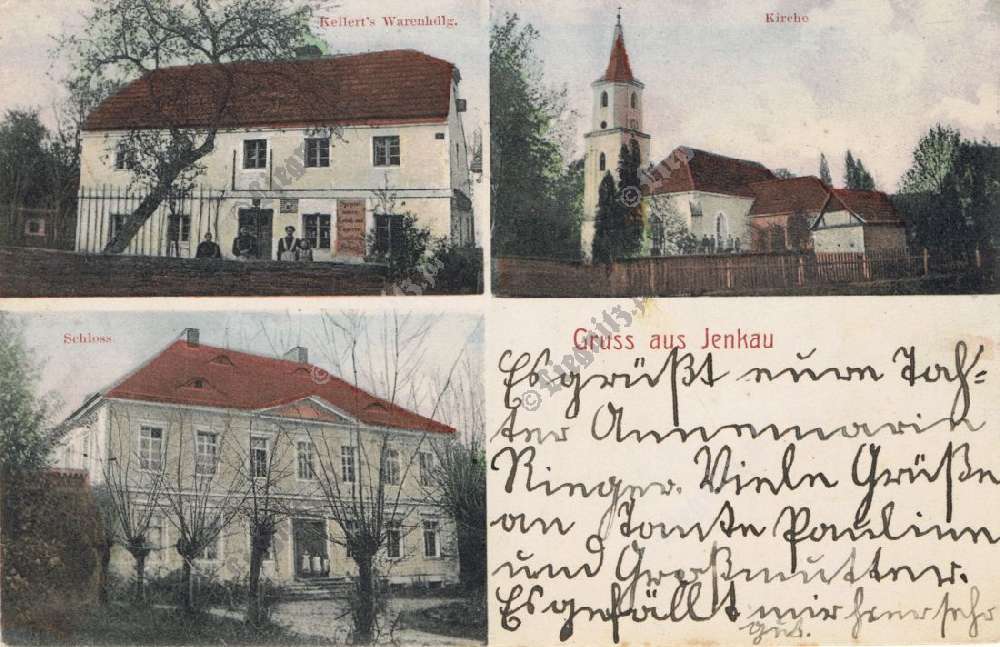 Kellert's Warenhdlg.
Kirche
Schloss
Gruss aus Jenkau
Es grüßt eure Toch-
ter Annemarie
Rieger. Viele Grüße
an Tante Pauline
und Großmutter.
Es gefällt mir hier sehr
gut.
© Liegnitz.pl